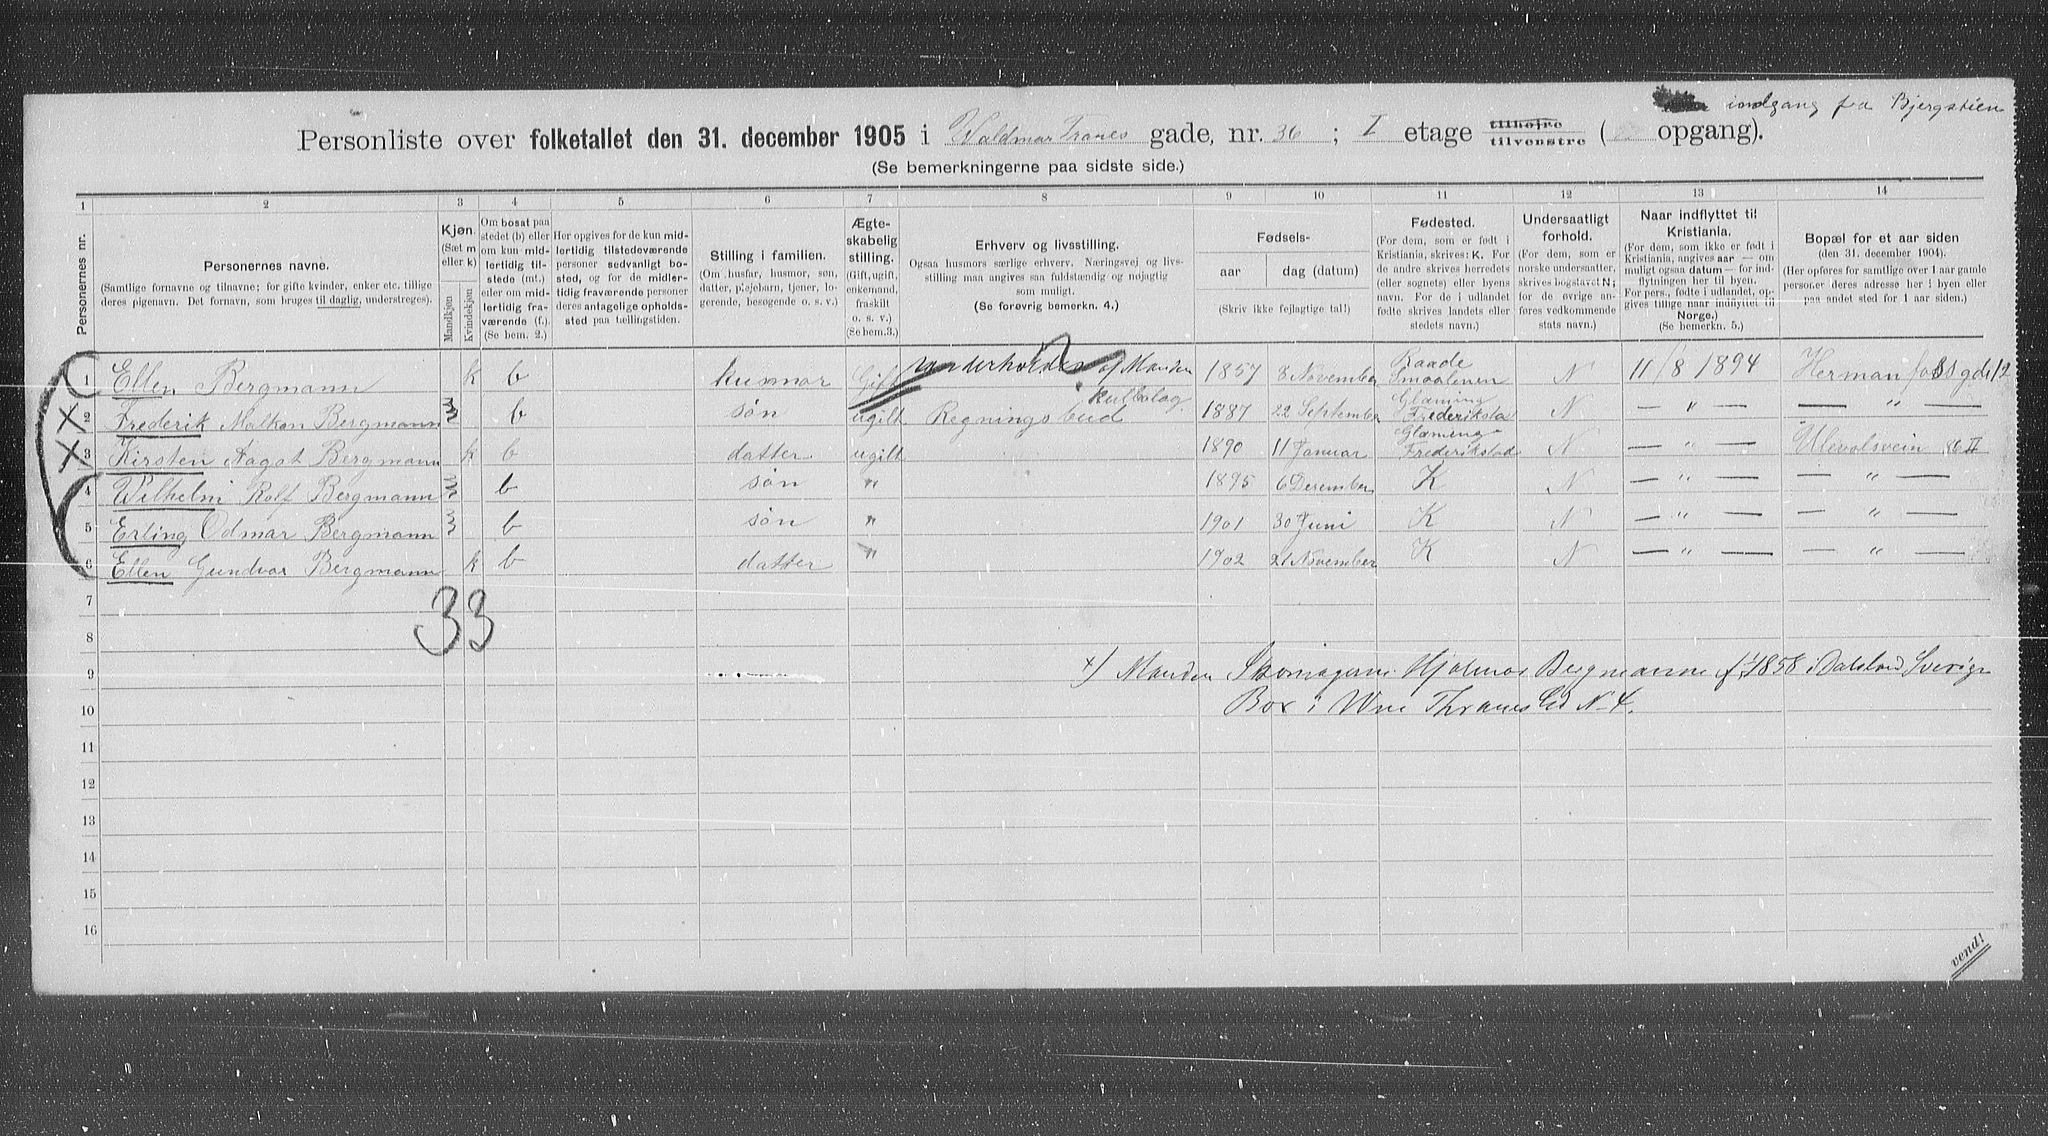 indgang fra Bjergstien
Personliste over folketallet den 31. december 1905 i Waldmar Tranes gade, nr. 36 ; I etage tilhøire tilvenstre ( opgang).
(Se bemerkningerne paa sidste side.)
1 2 3 4 5 6 7 8 9 10 11 12 13 14
Personernes nr.
Personernes navne.
(Samtlige fornavne og tilnavne; for gifte kvinder, enker etc. tillige
deres pigenavn. Det fornavn, som bruges til daglig, understreges).
Kjøn.
(Sæt m
eller k)
Mandkjøn
Kvindekjøn
Om bosat paa
stedet (b) eller
om kun mid-
lertidig til-
stede (mt.)
eller om mid-
lertidig fra-
værende (f.).
(Se bem. 2.)
Her opgives for de kun mid-
lertidig tilstedeværende
personer sedvanligt bo-
sted, og for de midler-
tidig fraværende personer
deres antagelige opholds-
sted paa tællingstiden.
Stilling i familien.
(Om husfar, husmor, søn,
datter, plejebarn, tjener, lo-
gerende, besøgende o. s. v.)
Ægte-
skabelig
stilling.
(Gift, ugift,
enkemand,
fraskilt
o. s. v.)
(Se bem. 3.)
Erhverv og livsstilling.
Ogsaa husmors særlige erhverv. Næringsvej og livs-
stilling man angives saa fuldstændig og nøjagtig
som muligt.
(Se forøvrig bemerkn. 4.)
Fødsels-
aar dag (datum)
(Skriv ikke fejlagtige tal!)
Fødested.
(For dem, som er født i
Kristiania, skrives: K. For
de andre skrives herredets
(eller sognets) eller byens
navn. For de i udlandet
fødte skrives landets eller
stedets navn.)
Undersaatligt
forhold.
(For dem, som er
norske undersaatter,
skrives bogstavet N;
for de øvrige an-
føres vedkommende
stats navn.)
Naar indflyttet til
Kristiania.
(For dem, som ikke er født i
Kristiania, angives aar — om
muligt ogsaa datum — for ind-
flytningen her til byen.
For pers., fødte i udlandet, op-
gives tillige naar indflyttet til
Norge.)
(Se bemerkn. 5.)
Bopæl for et aar siden
(den 31. december 1904).
(Her opføres for samtlige over 1 aar gamle
personer deres adresse her i byen eller
paa andet sted for 1 aar siden.)
1 Ellen Bergmann k b husmor Gift underholdes af Manden 1857 8 November Raade Smaalenen 11/8 1894 Herman foss gd 12
X 2 Frederik Malkon Bergmann m b søn ugift Regningsbud 1887 22 September Glæming Frederikstad N — " — — " —
X 3 Kirsten Aagot Bergmann k b datter ugift 1890 11 Januar Glæminge Frederikstad N — " — Ulevolsvein 86 II
4 Wilhelm Rolf Bergmann m b søn " 1895 6 Desember K N — " — — " —
5 Erling Odmar Bergmann m b søn " 1901 30 Juni K N — " — — " —
6 Ellen Gundvor Bergmann k b datter " 1902 21 November K N — " — — " —
7
33
8
x) Manden Skomagerm. Hjalmar Bergmann f. 1858 i Dalsland Sverige
9
Bor i Wm Thranes Gd N. 4.
10
11
12
13
14
15
16
vend!